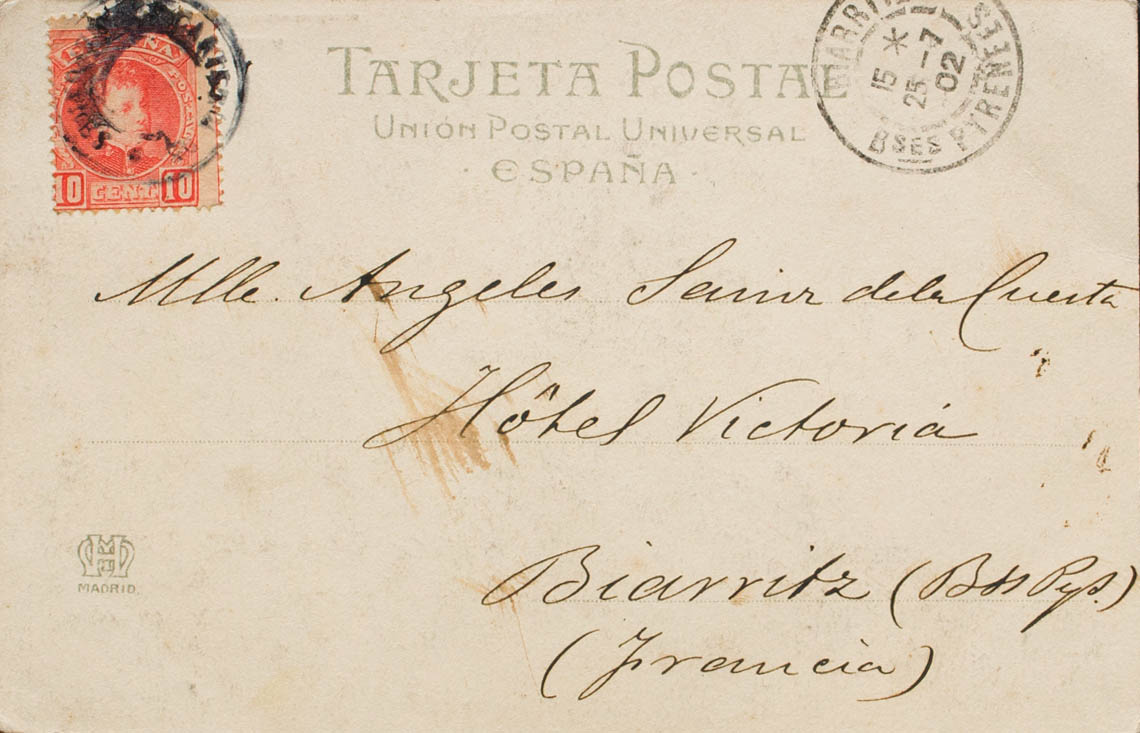 ESPAÑA
10 CENT 10
TARJETA POSTAL
UNIÓN POSTAL UNIVERSAL
· ESPAÑA ·
BIARRITZ
15 *
25 -7
02
BSES PYRENEES
Mlle. Angeles Sainz de la Cuesta
Hôtel Victoriá
Biarritz (Bss Pys.)
(Francia)
HM
MADRID